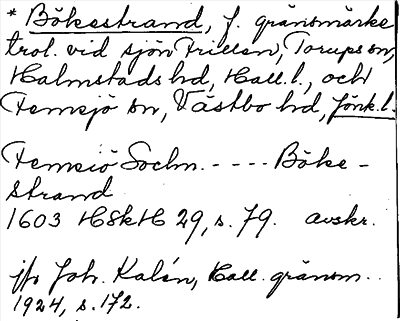 * Bökestrand, f. gränsmärke
trol. vid sjön Frillen, Torups sn,
Halmstads hd, Hall. l., och
Femsjö sn, Västbo hd, Jönk. l.
Femsiö Sochn. - - - - Böke-
strand
1603 HSkH 29, s. 79. avskr.
jfr Joh. Kalén, Hall. gränsm..
1924, s. 172.